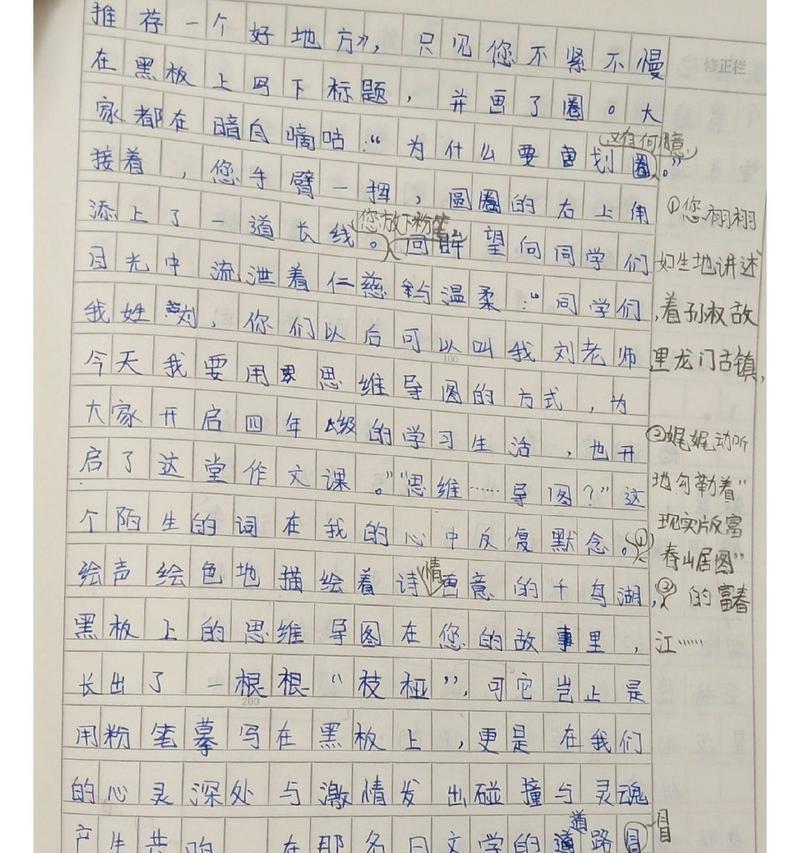 推荐一个好地方》，只见您不紧不慢
在黑板上写下标题，并画了圈。大
家都在暗自嘀咕：“为什么要画圈。”
又有何意
接着，您手臂一挥，圆圈的右上角
添上了一道长线。回眸望向同学们
您放下粉笔
目光中流泄着仁慈和温柔：“同学们
我姓刘，你们以后可以叫我刘老师
今天我要用思维导图的方式，为
大家开启四年级的学习生活，也开
启了这堂作文课。”“思维……导图？”这
个陌生的词在我的心中反复默念。①
绘声绘色地描绘着诗情画意的千岛湖，②
黑板上的思维导图在您的故事里，
长出了一根根“枝桠”，可它岂止是
用粉笔摹写在黑板上，更是在我们
的心灵深处与激情发出碰撞与灵魂
产生共鸣
在那名曰文学的道路
修正栏
①您栩栩
如生地讲述
着孙权故
里龙门古镇，
②娓娓动听
地勾勒着“
现实版富
春山居图”
的富春
江……
100
200